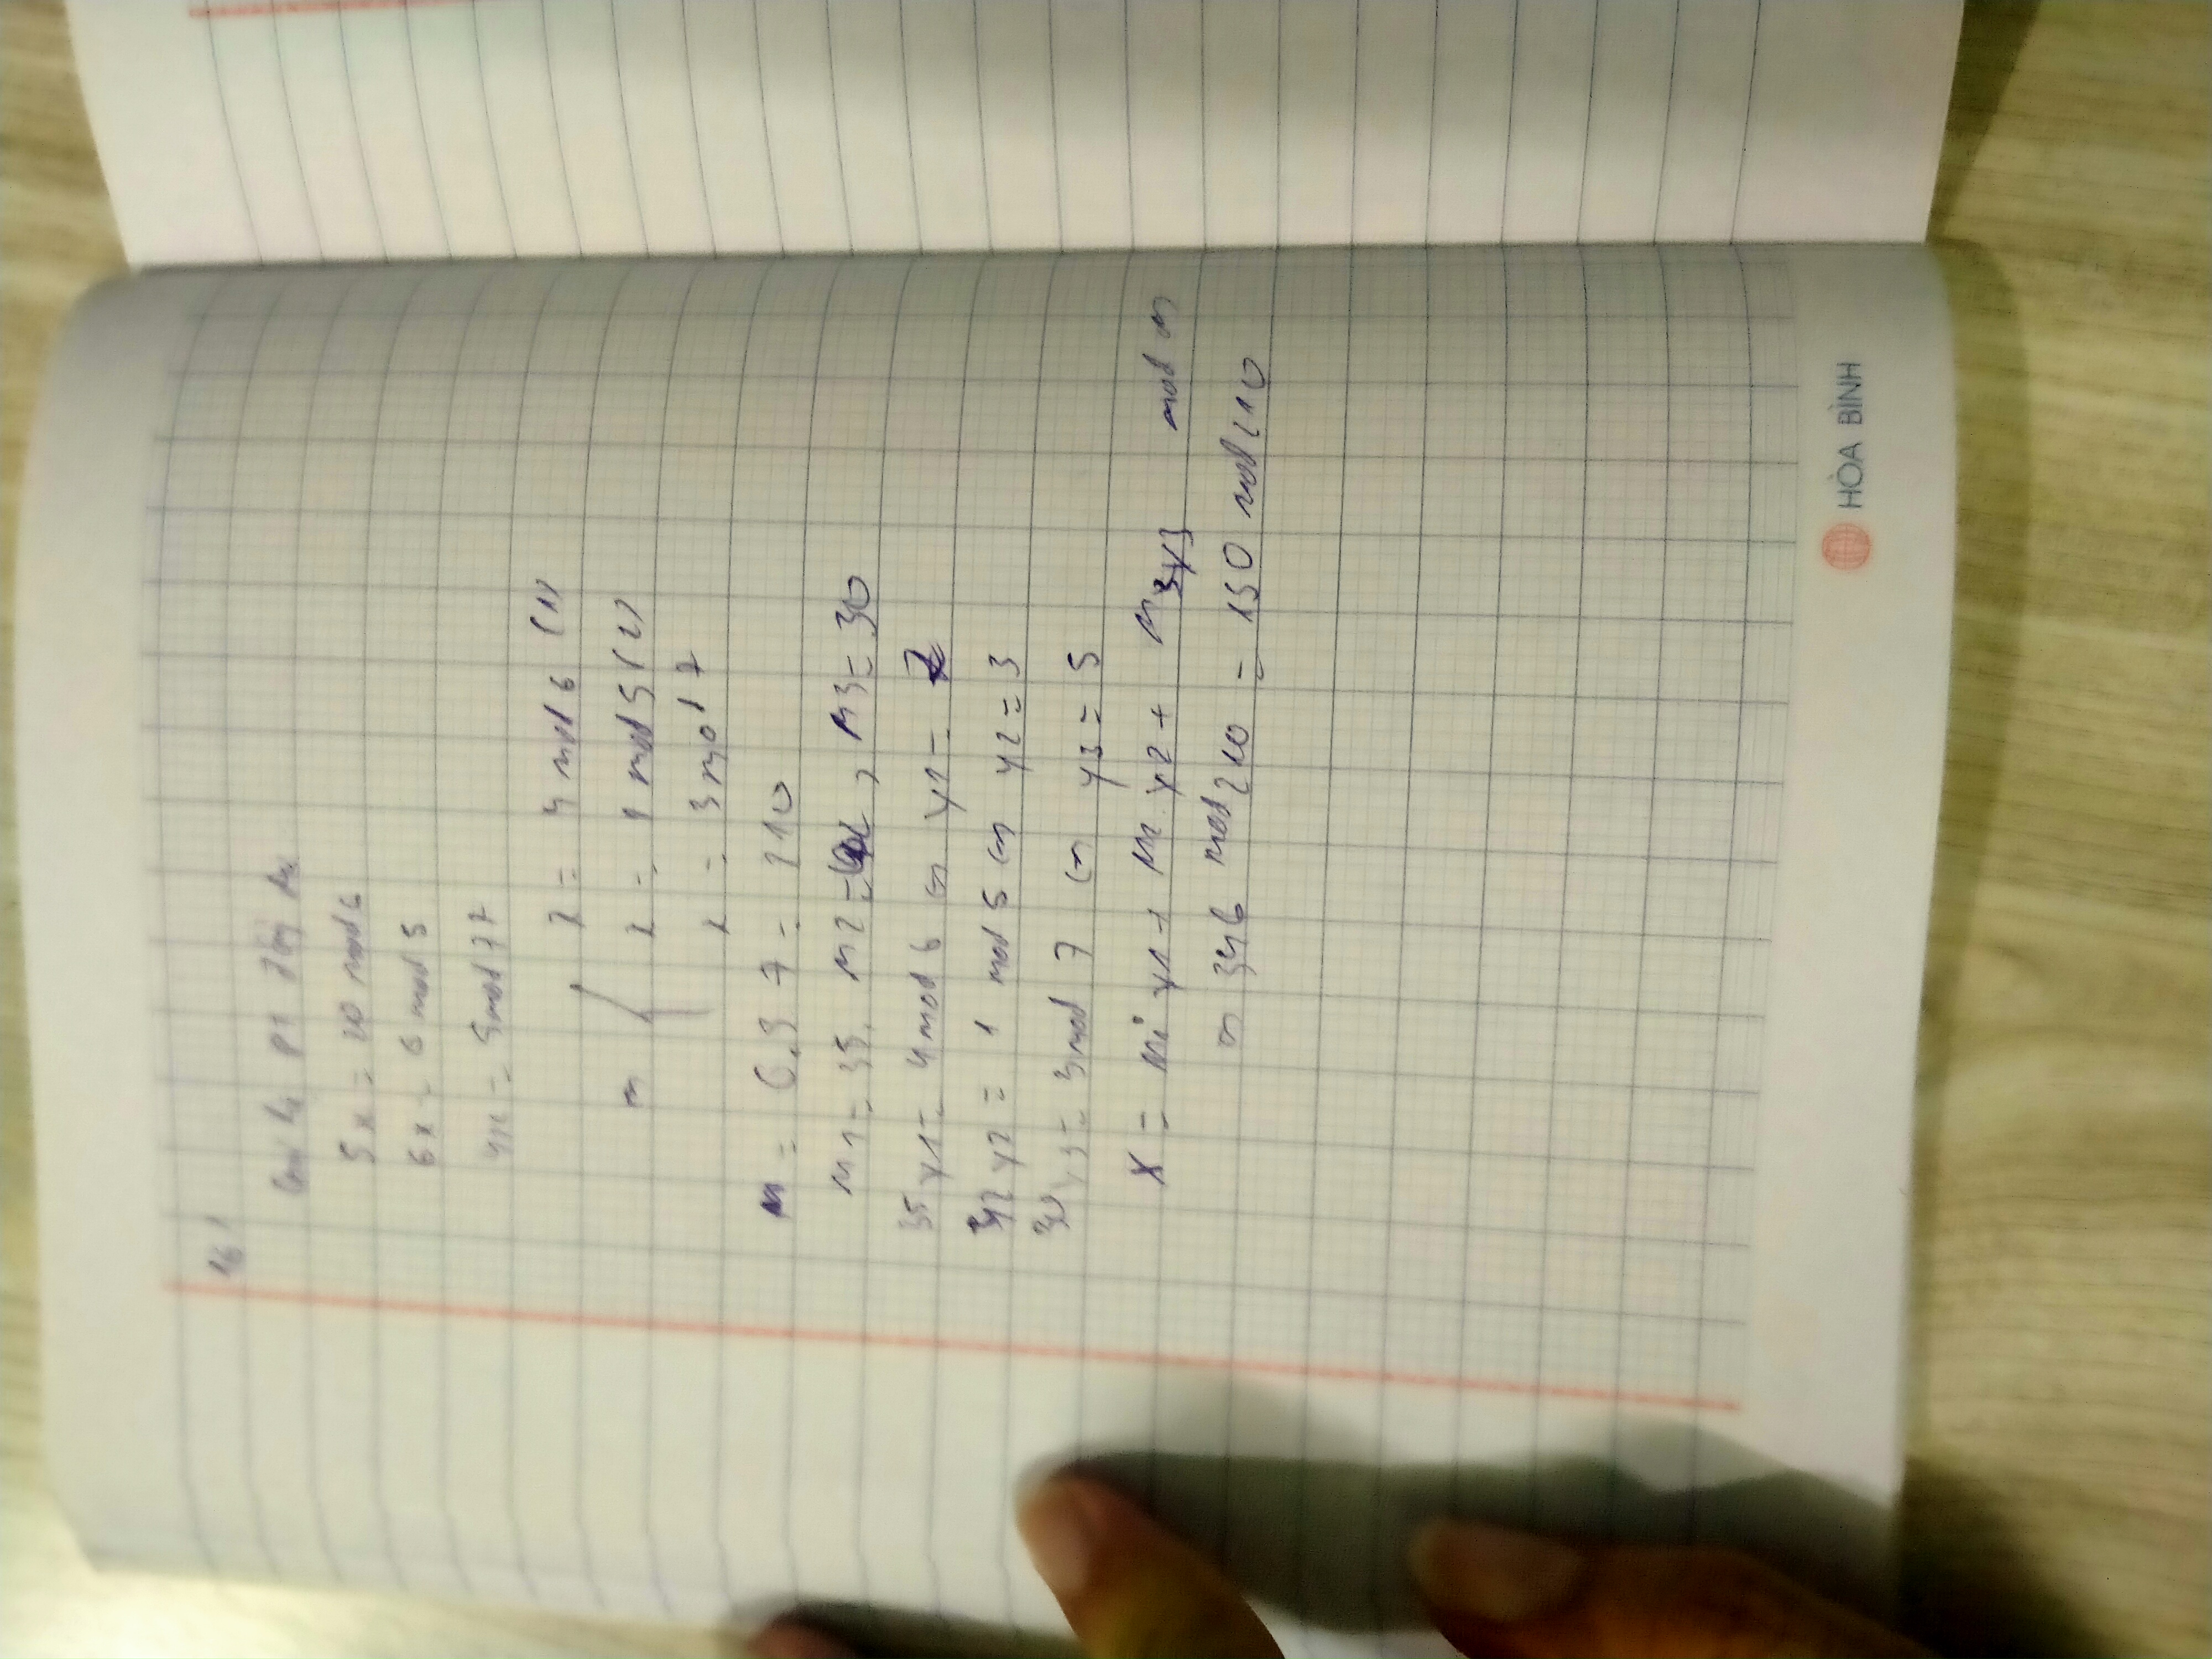 16!
pt
5x = 20 mod 6
6x = 6 mod 5
4x = 5 mod 77
x = 4 mod 6 (1)
x = 1 mod 5 (2)
x = 3 mod 7
M = 6.5 7 = 210
M1 = 35. M2 = 42, M3 = 30
35 y1 = 4 mod 6 y1 = 2
42 y2 = 1 mod 5 y2 = 3
30 y3 = 3 mod 7 y3 = 5
X = M1 y1 + M2 y2 + M3 y3 mod m
346 mod 210 = 150 mod 210
HÒA BÌNH